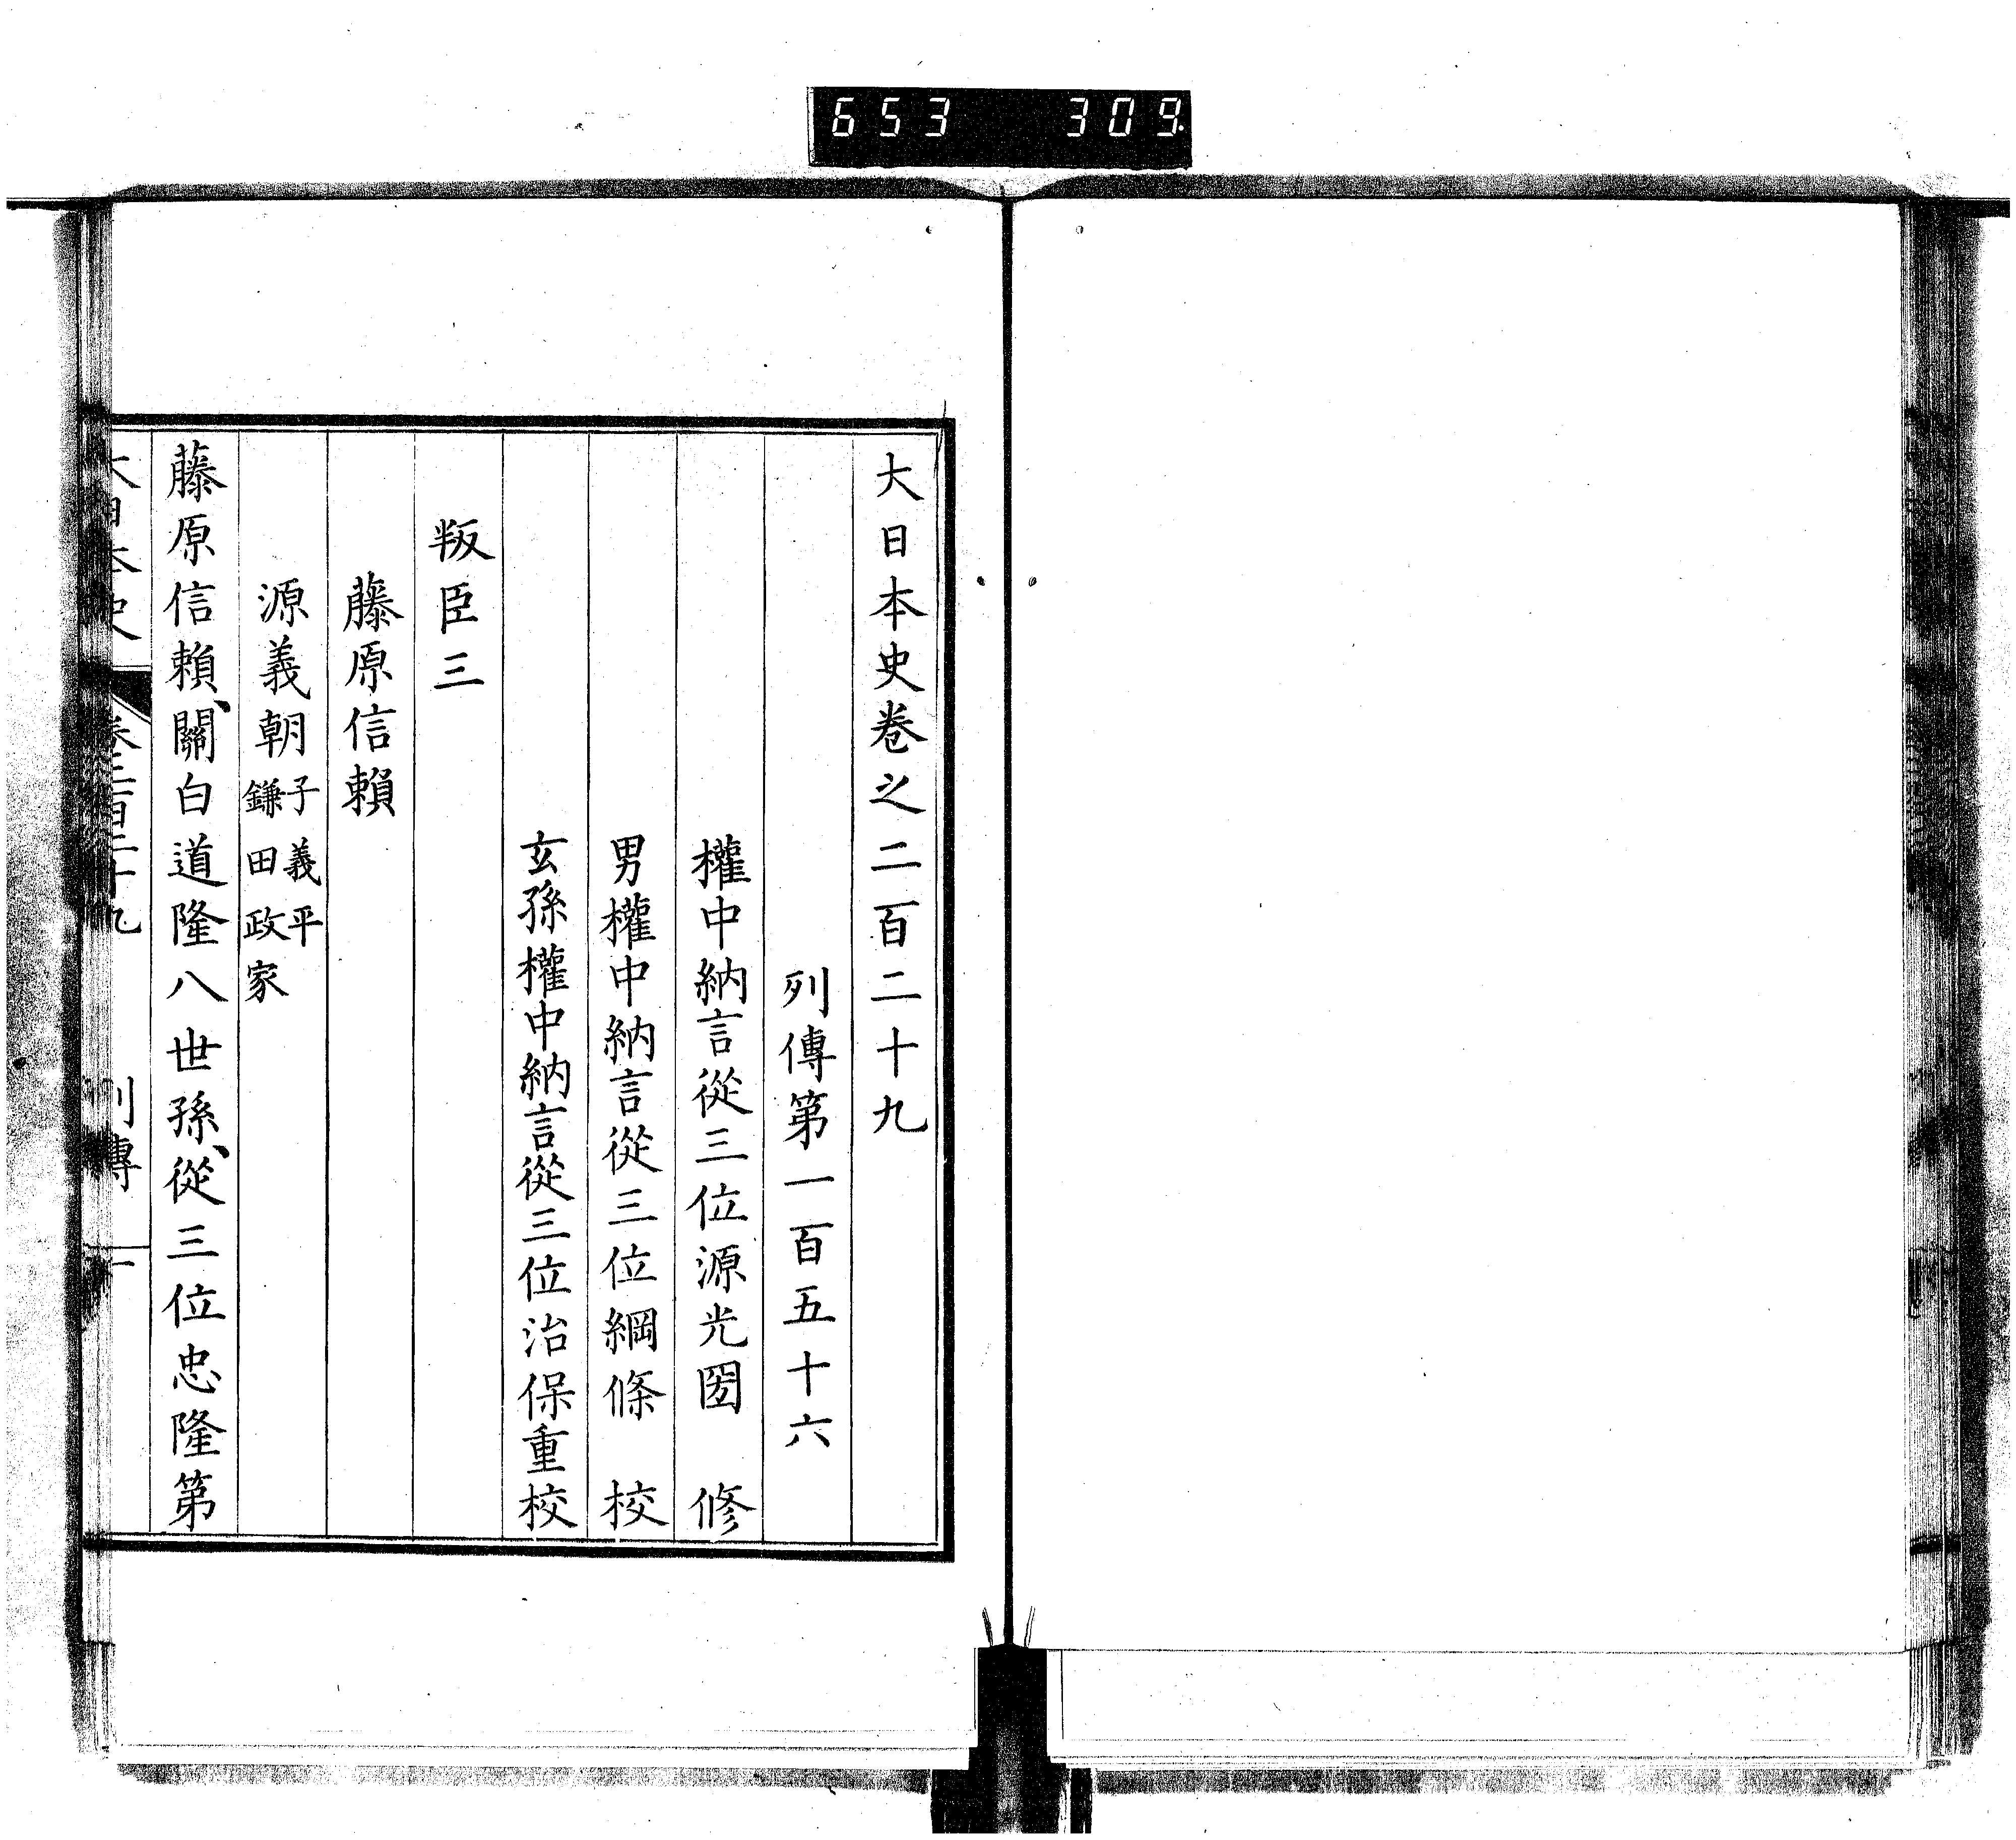 653 309
大日本史卷之二百二十九
列傳第一百五十六
權中納言從三位源光圀 修
男權中納言從三位綱條 校
玄孫權中納言從三位治保重校
叛臣三
藤原信賴
源義朝 子義平
鎌田政家
藤原信賴、關白道隆八世孫、從三位忠隆第
大日本史 卷二百二十九 列傳 一